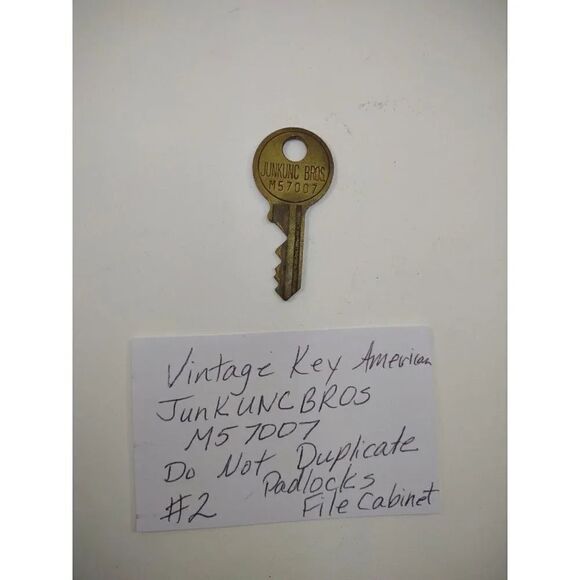 JUNKUNC BROS.
M57007
Vintage Key American
JunKUNCBROS
M57007
Do Not Duplicate
Padlocks
#2 File Cabinet